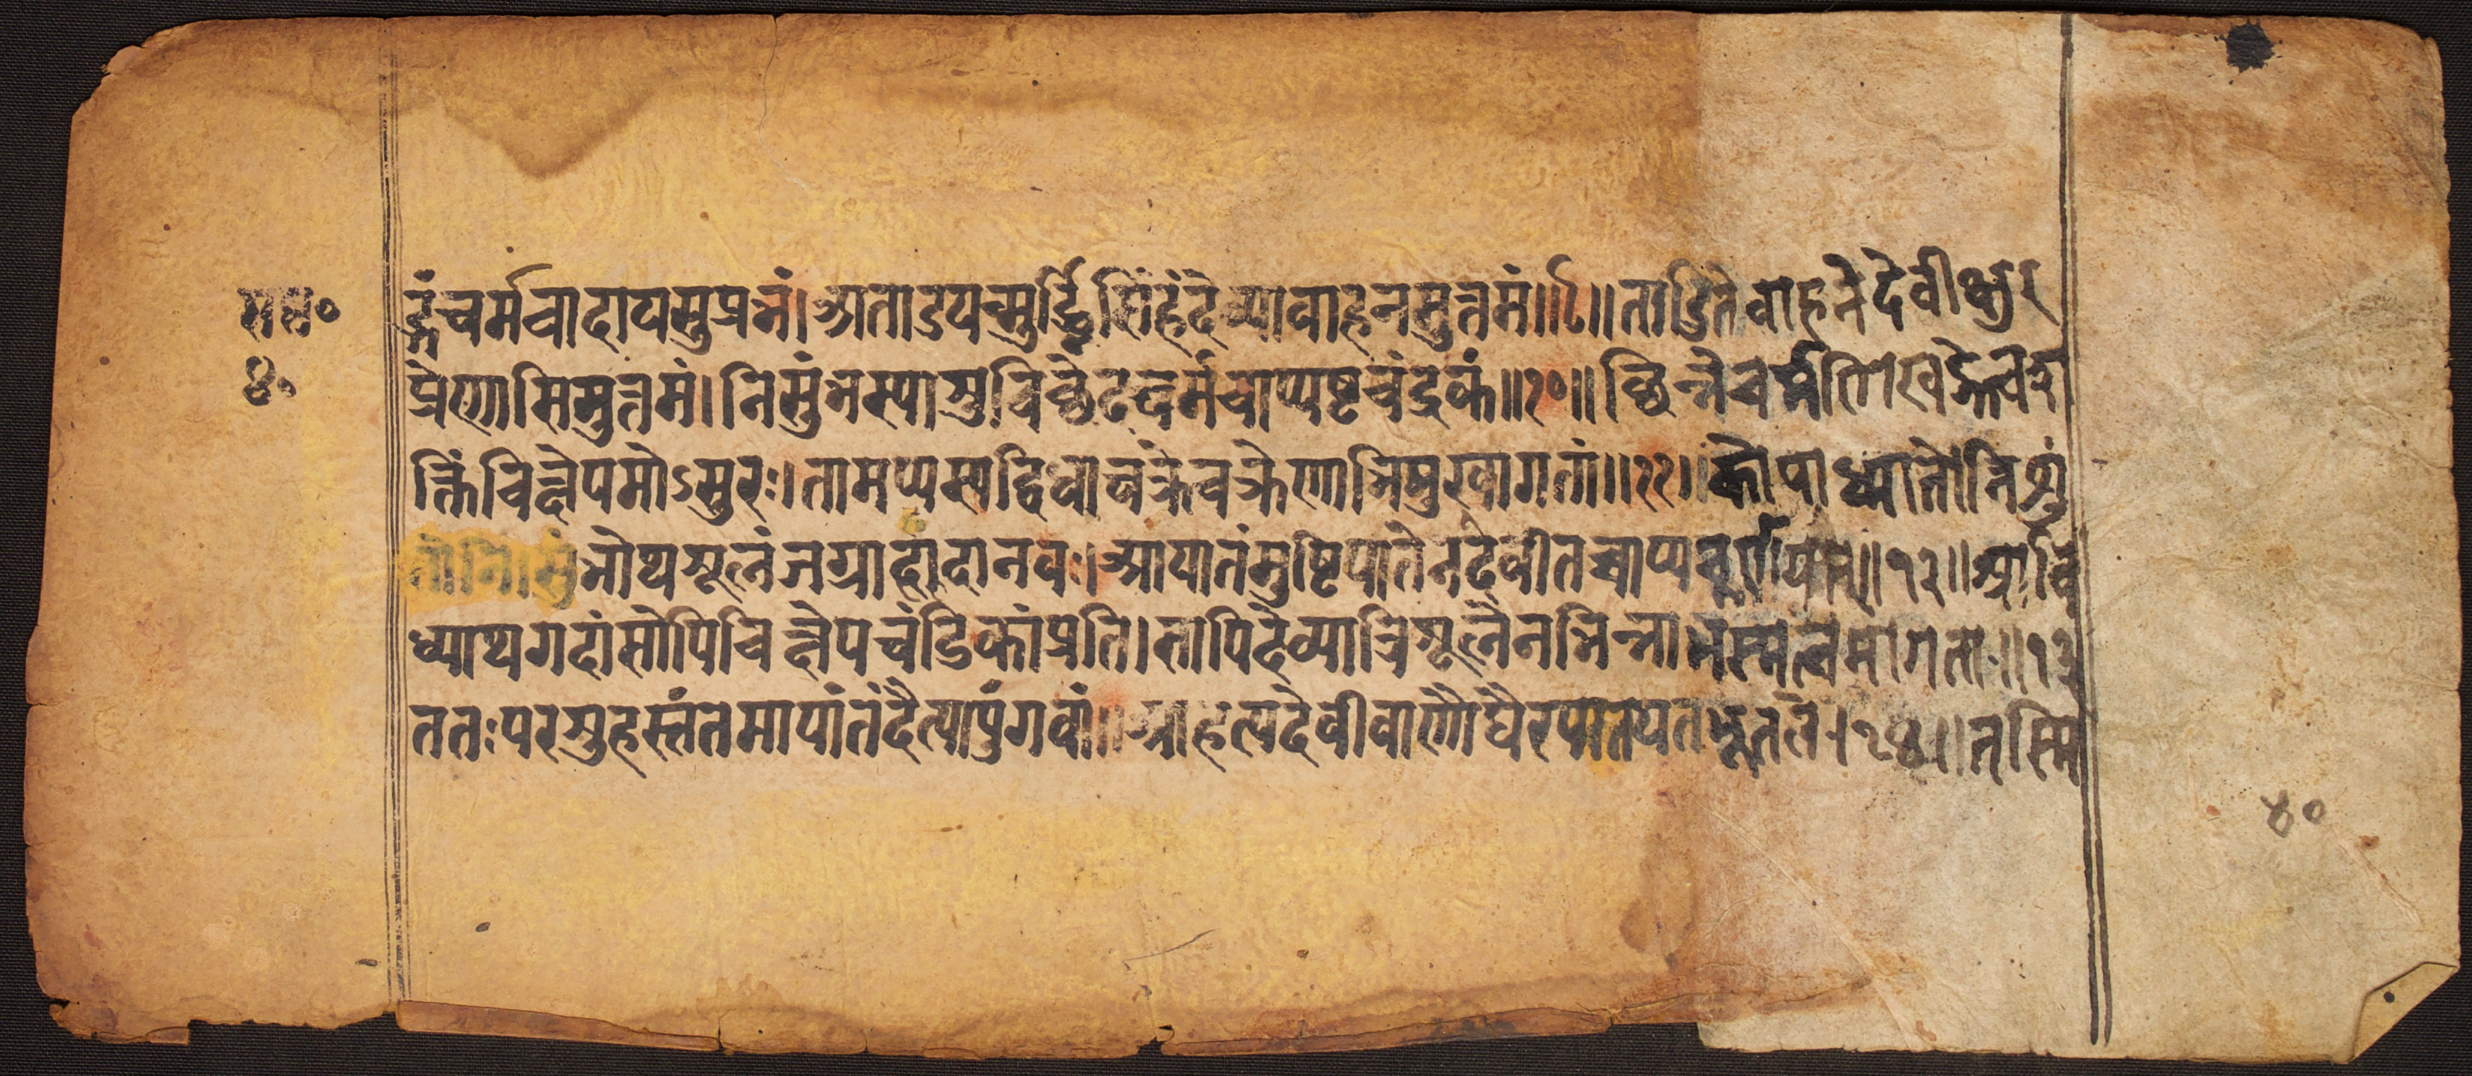 सप्त०
४०
ड्गंचर्मचादायसुप्रभं।अताडयन्मुर्द्ध्निसिंहंदेव्यावाहनमुत्तमं॥९॥ताडितेवाहनेदेवीक्षुर
प्रेणासिमुत्तमं।निसुंभस्यासुचिछेदचर्मचाप्यष्टचंद्रकं॥१०॥छिन्नेचर्मणिखड्गेचश
क्तिंचिक्षेपसोऽसुरः।तामप्यस्यद्विधाचक्रेचक्रेणाभिमुखागतां॥११॥कोपाध्मातोनिशुं
भोथशूलंजग्राहदानवः।आयातंमुष्टिपातेनदेवीतच्चाप्यचूर्णयत्॥१२॥आवि
ध्याथगदांसोपिचिक्षेपचंडिकांप्रति।सापिदेव्यात्रिशूलेनभिन्नाभस्मत्वमागता॥१३
ततःपरशुहस्तंतमायांतंदैत्यपुंगवं॥आहत्यदेवीबाणौघैरपातयतभूतले।१४॥तस्मि
४०